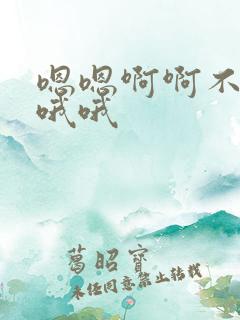 嗯嗯啊啊不
哦哦
葛昭宝
未经同意禁止转载